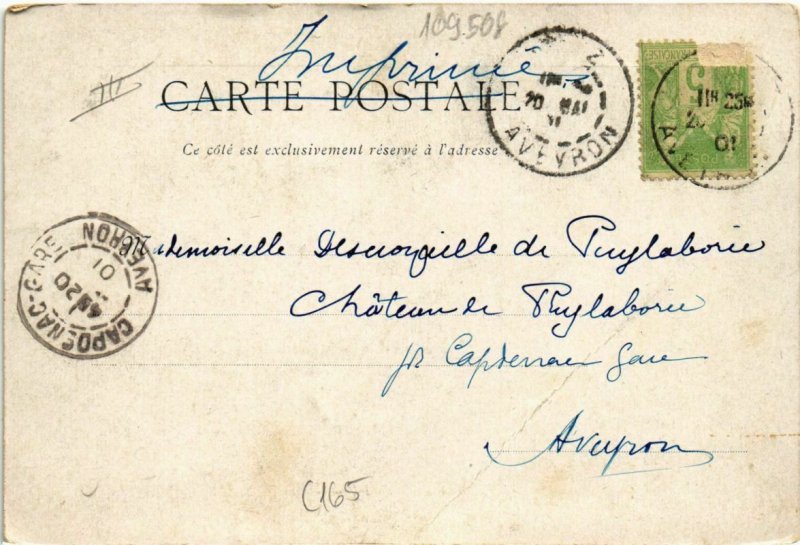 109.508
Imprimé
CARTE POSTALE
Ce côté est exclusivement réservé à l'adresse
20 MAI
AVEYRON
5
11H 25M
01
CAPDENAC-GARE
AVEYRON
4H 20
01
Mademoiselle de Puylaborie
Château de Puylaborie
pr Capdenac Gare
Aveyron
C165